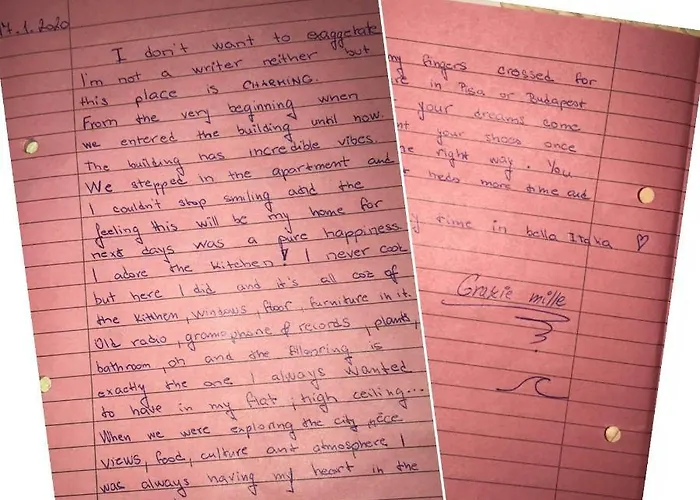 14.1.2020
I don't want to exaggerate
I'm not a writer neither but
this place is CHARMING.
From the very beginning when
we entered the building until now.
The building has incredible vibes.
We stepped in the apartment and
I couldn't stop smiling and the
feeling this will be my home for
next days was a pure happiness.
I adore the kitchen! I never cook
but here I did and it's all coz of
the kitchen, windows, floor, furniture in it.
Old radio, gramophone & records, plants,
bathroom, oh and the flooring is
exactly the one I always wanted
to have in my flat, high ceiling...
When we were exploring the city
views, food, culture and atmosphere I
was always having my heart in the
my fingers crossed for
in Pisa or Budapest
your dreams come
your shoes once
right way. You
needs more time and
time in bella Italia ♡
Grazie mille